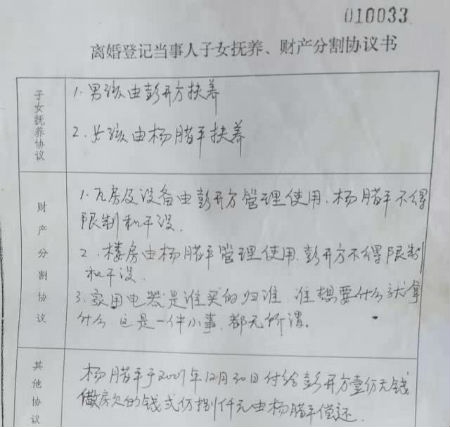 010033
离婚登记当事人子女抚养、财产分割协议书
子女抚养协议
1.男孩由彭开方扶养
2.女孩由杨腊平扶养
财产分割协议
1.瓦房及设备由彭开方管理使用.杨腊平不得
限制和干涉.
2.楼房由杨腊平管理使用.彭开方不得限制
和干涉.
3.家用电器是谁买的归谁 谁想要什么就拿
什么 这是一件小事.都无所谓。
其他协议
杨腊平于2001年12月30日付给彭开方壹仟元钱
做房欠的钱贰仟捌佰元由杨腊平偿还.